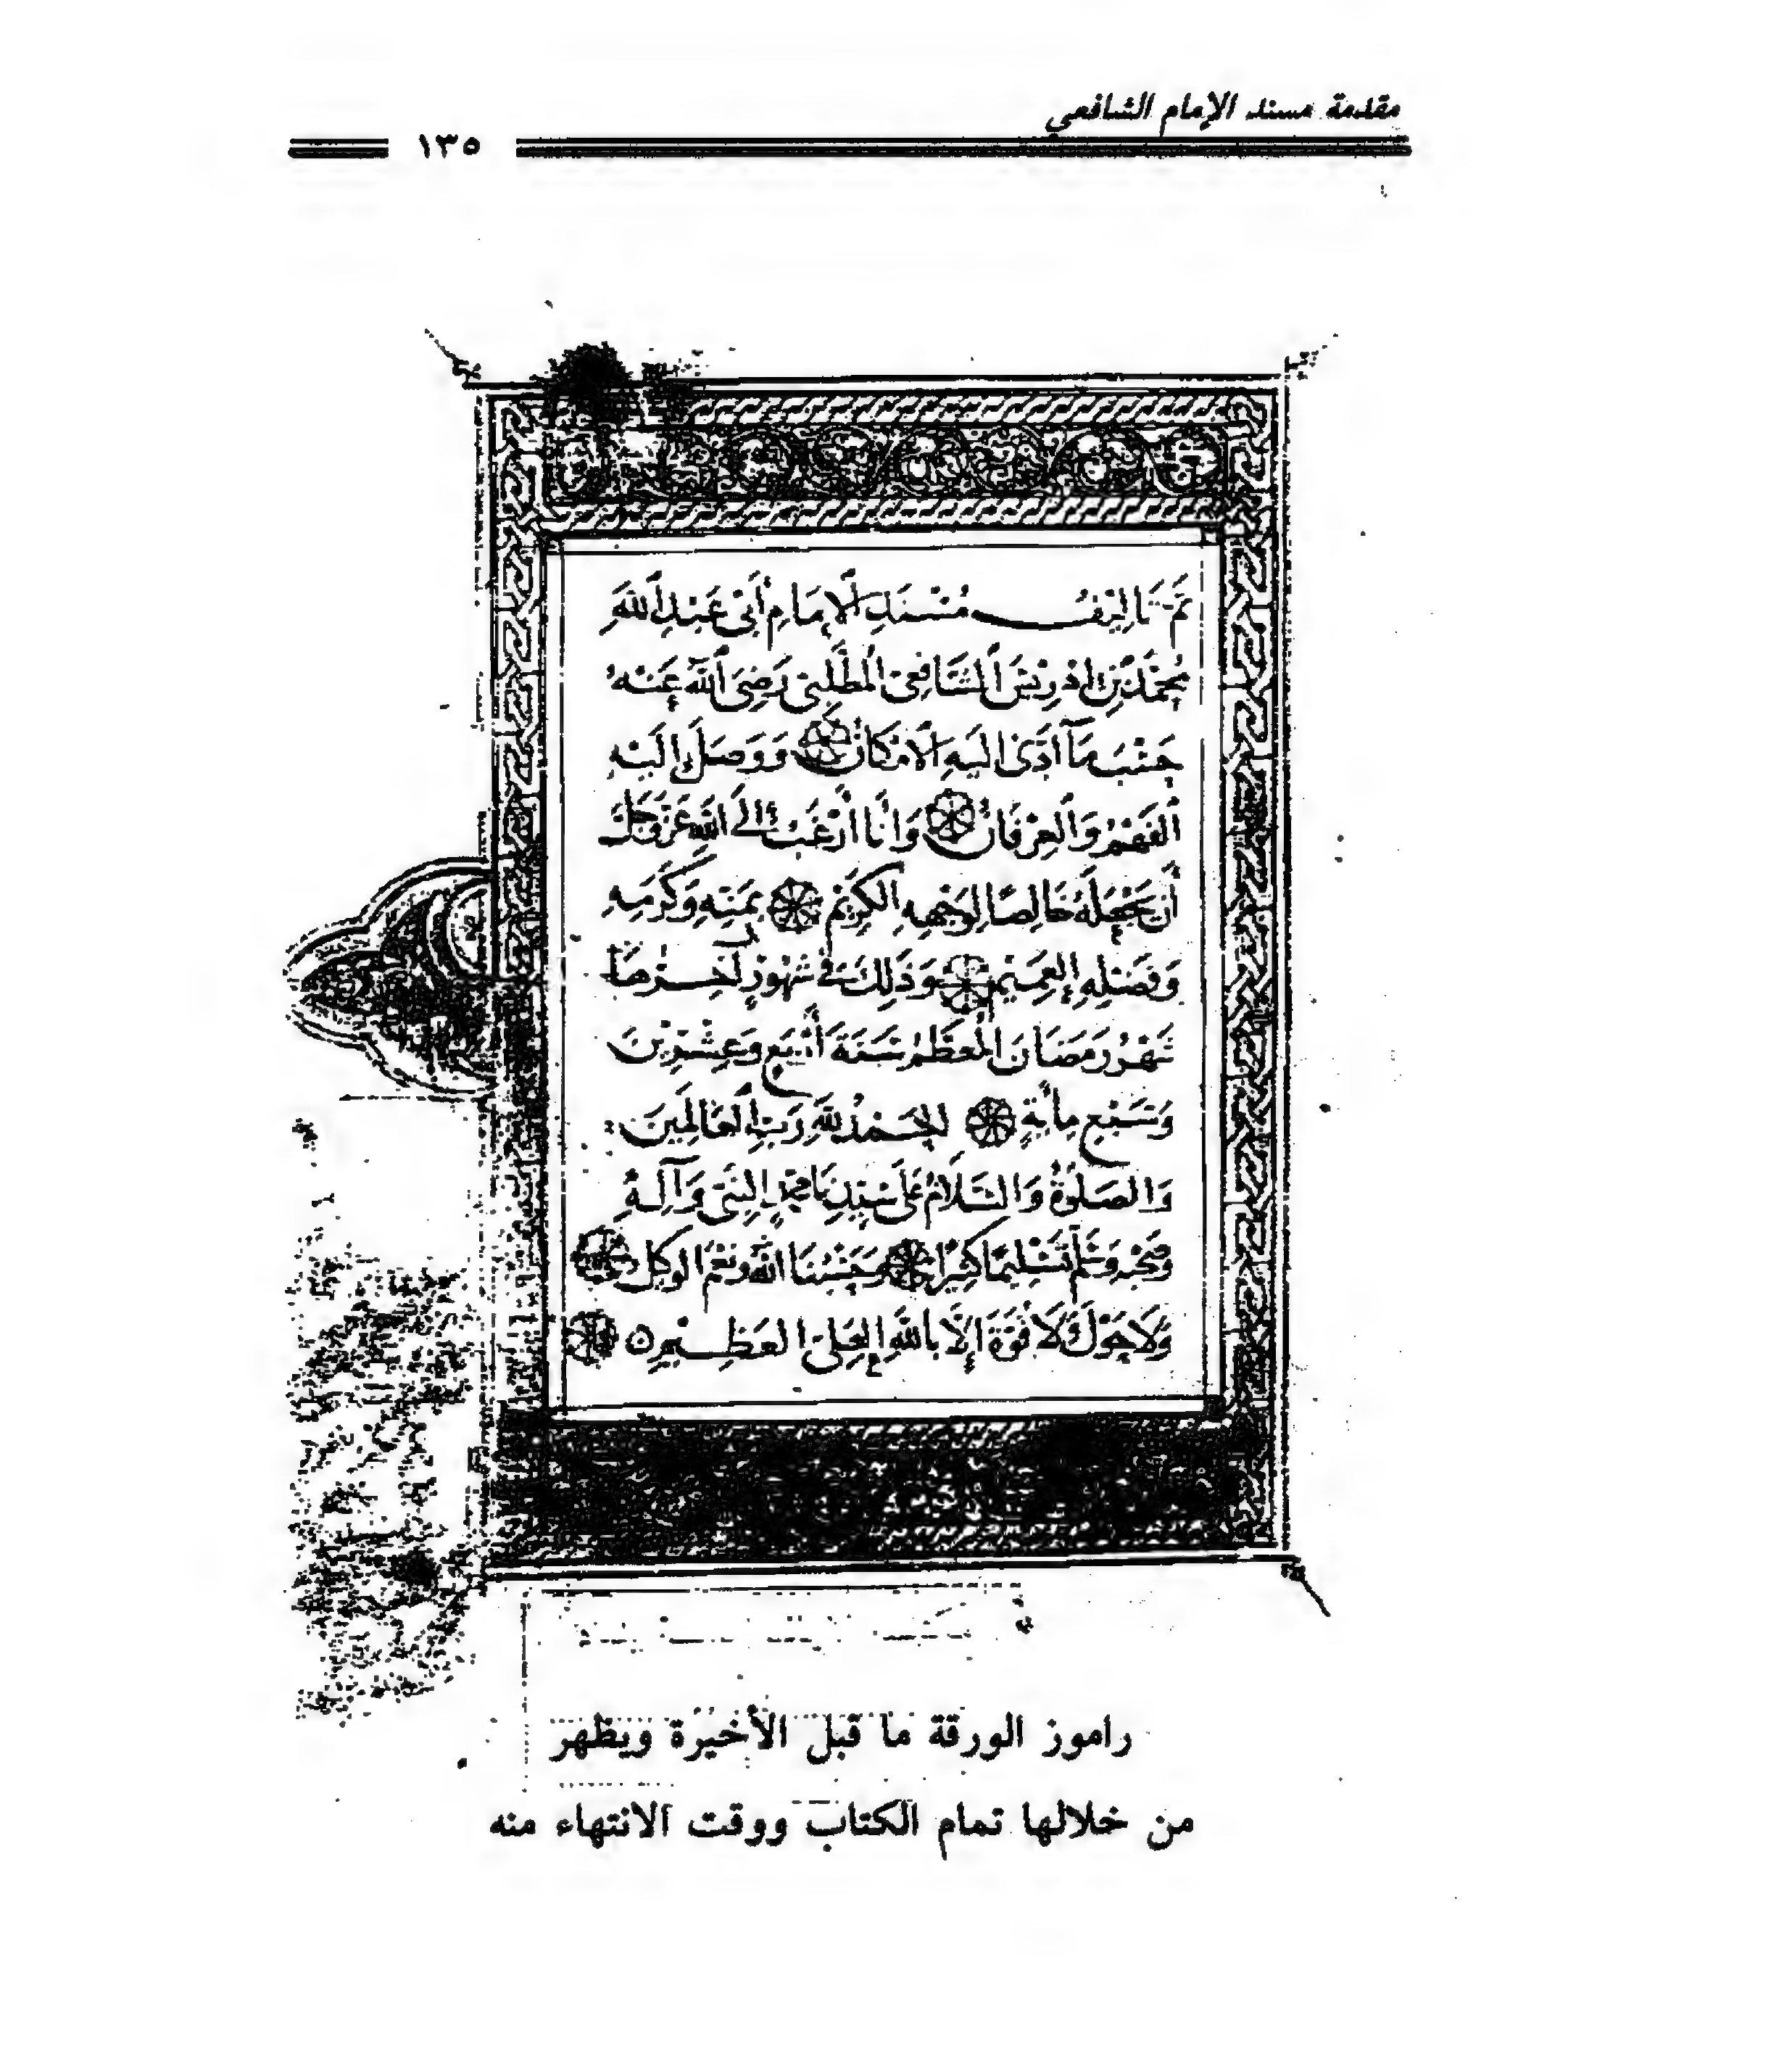 مقدمة مسند الإمام الشافعي
١٣٥
تَمَّ تَأليفُ مُسْنَدِ الإِمَامِ أَبِي عَبْدِ اللَّهِ
مُحَمَّدِ بْنِ إدْرِيْسَ الشَّافِعِيِّ الْمُطَّلِبِيِّ رَضِيَ اللَّهُ عَنْهُ
حَسْبَ مَآ أدَّى إلَيهِ الإمْكَانُ وَوَصَلَ إلَيْهِ
الفَهْمُ وَالْعِرْفَانُ وَأنَا أَرْغَبُ إلَى اللَّهِ عَزَّ وَجَلَّ
أَن يَجْعَلَهُ خَالِصًا لِوَجْهِهِ الكَرِيْمِ بِمَنِّهِ وَكَرَمِهِ
وَفَضْلِهِ العَمِيْمِ وَذَلِكَ فِي شُهُوْرٍ آخِرُهَا
شَهْرُ رَمَضَانَ الْمُعَظَّمُ سَنَةَ أَرْبَعٍ وَعِشْرِيْنَ
وَسَبْعِ مِأيَةٍ الحَمْدُ لِلَّهِ رَبِّ العَالَمِينَ
وَالصَلَوٰةُ وَالسَّلَامُ عَلَى سَيِّدِنَا مُحَمَّدٍ النَّبِيِّ وَآلِهِ
وَصَحْبِهِ وَسَلَّمَ تَسْلِيْمًا كَثِيْرًا وَحَسْبُنَا اللَّهُ وَنِعْمَ الوَكِيْلُ
وَلَا حَوْلَ وَلَا قُوَّةَ إِلَّا بِاللَّهِ العَلِيِّ العَظِيْمِ
راموز الورقة ما قبل الأخيرة ويظهر
من خلالها تمام الكتاب ووقت الانتهاء منه